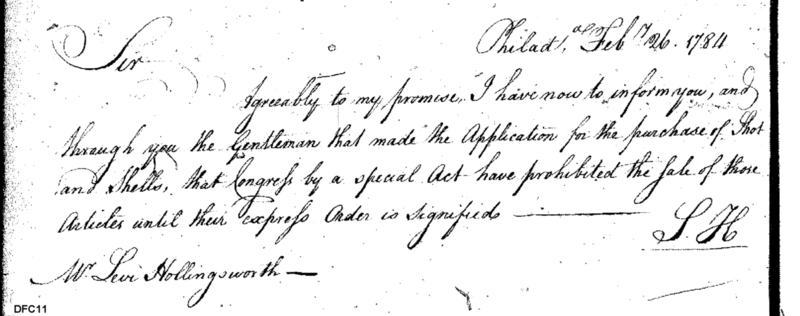 Philada. Feby 26. 1784
Sir
Agreeably to my promise, I have now to inform you, and
through you the Gentleman that made the Application for the purchase of Shot
and Shells, that Congress by a special Act have prohibited the Sale of those
Articles until their express Order is signified —
S. H
Mr. Levi Hollingsworth —
DFC11